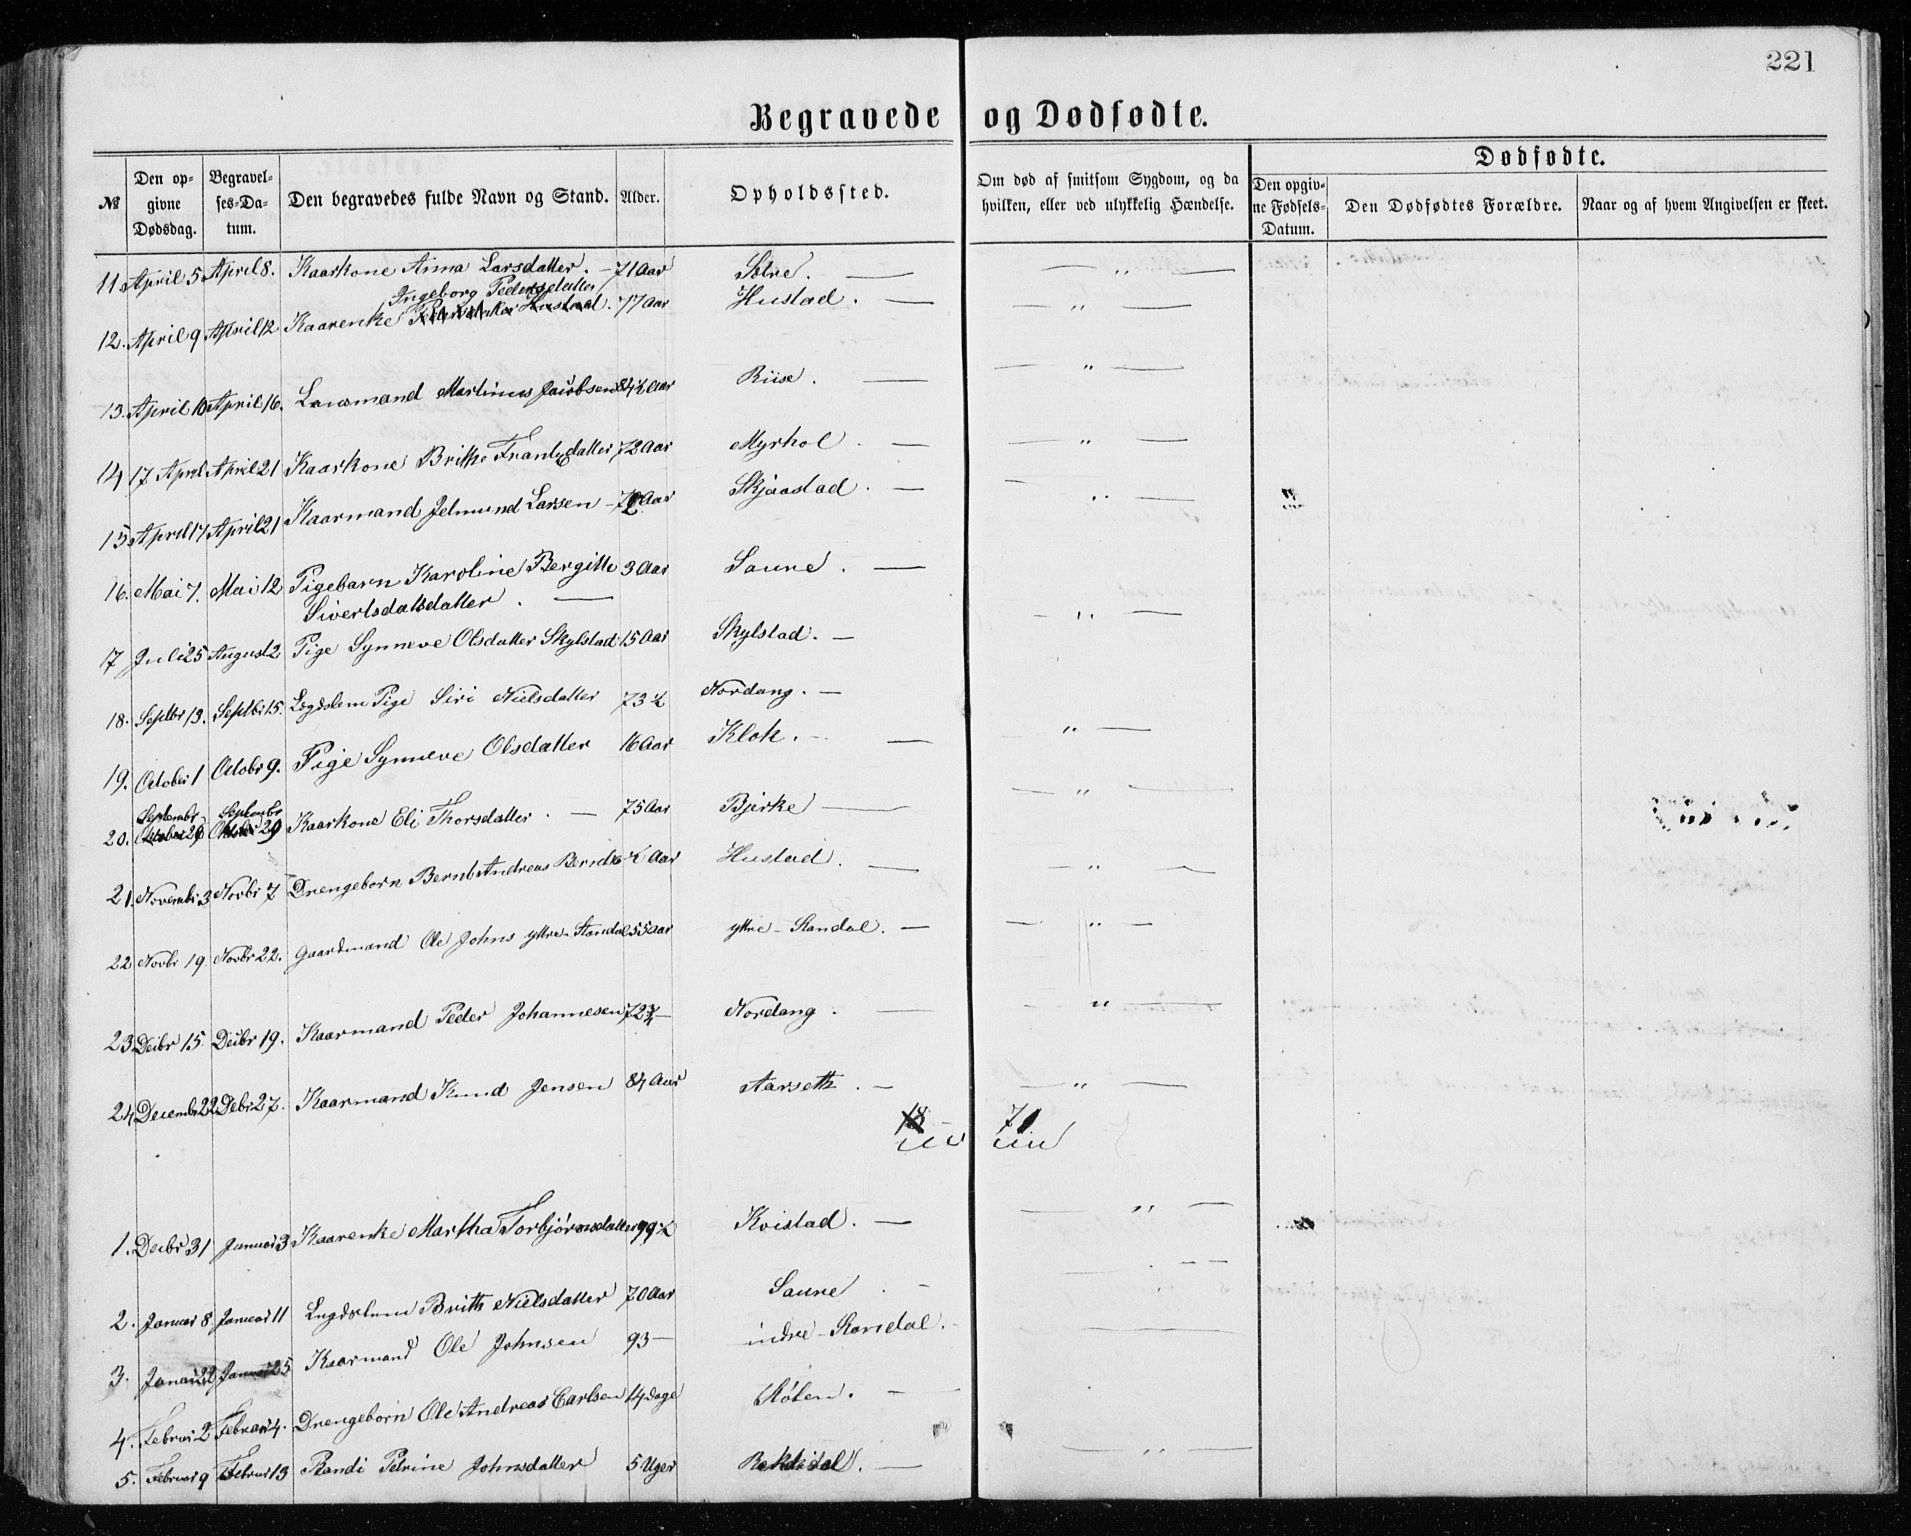 221
Begravede og Dødfødte.
№ Den opgivne Dødsdag. Begravelses-Datum. Den begravedes fulde Navn og Stand. Alder. Opholdssted. Om død af smitsom Sygdom, og da hvilken, eller ved ulykkelig Hændelse. Dødfødte. Den opgivne Fødsels-Datum. Den Dødfødtes Forældre. Naar og af hvem Angivelsen er skeet.
11. April 5 April 8. Kaarkone Anna Larsdatter. 71 Aar Sølre. "
Ingeborg Pedersdatter
12. April 9 April 12 Kaarenke Hustad. 77 Aar Hustad. "
13. April 10 April 16. Martinus Jacobsen 84½ Aar Riise. "
14 17 April April 21 Kaarkone Brithe Frantzdatter 72 Aar Myrhol. "
15 April 17 April 21 Kaarmand Jelmund Larsen Aar Skjaastad. "
16. Mai 7. Mai 12 Pigebarn Karoline Bergitte 3 Aar Saure.
Sivertsdatsdatter. "
7 Juli 25 August 2 Pige Synneve Olsdatter Skylstad 15 Aar Skylstad.
18. Septbr 13. Septbr 15. Lægdslem Pige Siri Nielsdatter 73½ Nordang.
19. October 1 Octobr 9. Pige Synneve Olsdatter 16 Aar Klok. "
Septembr Septembr
20. October 26 October 29 Kaarkone Eli Thorsdatter. 75 Aar Bjerke "
21. Novembr 3 Novbr 7 Drengebarn Bernt Andreas ½ Aar Hustad. "
22 Novbr 19. Novbr 22. Gaardmand Ole Johns ytre-Standal 55 Aar ytre-Standal. "
23 Decbr 15. Decbr 19. Kaarmand Peder Johannesen 72¾ Nordang. "
24 Decembr 22 Debr 27. Kaarmand Knud Jensen 84 Aar Aarseth. "
18 71
1. Decbr 31 Januar 3 Kaarenke Martha Torbjørnsdatter 99½ Kvistad. "
2. Januar 8. Januar 11 Lægdslem Brith Nielsdatter 70 Aar Saure
3. Januar 22 Januar 25 Kaarmand Ole Johnsen 93 indre-Standal.
4. Februar 2 Februar 4. Drengebarn Ole Andreas Carlsen 14 dage Støten.
5. Februar 9 Februar 13 Randi Petrine Johnsdatter 5 Uger Rekkedal. "